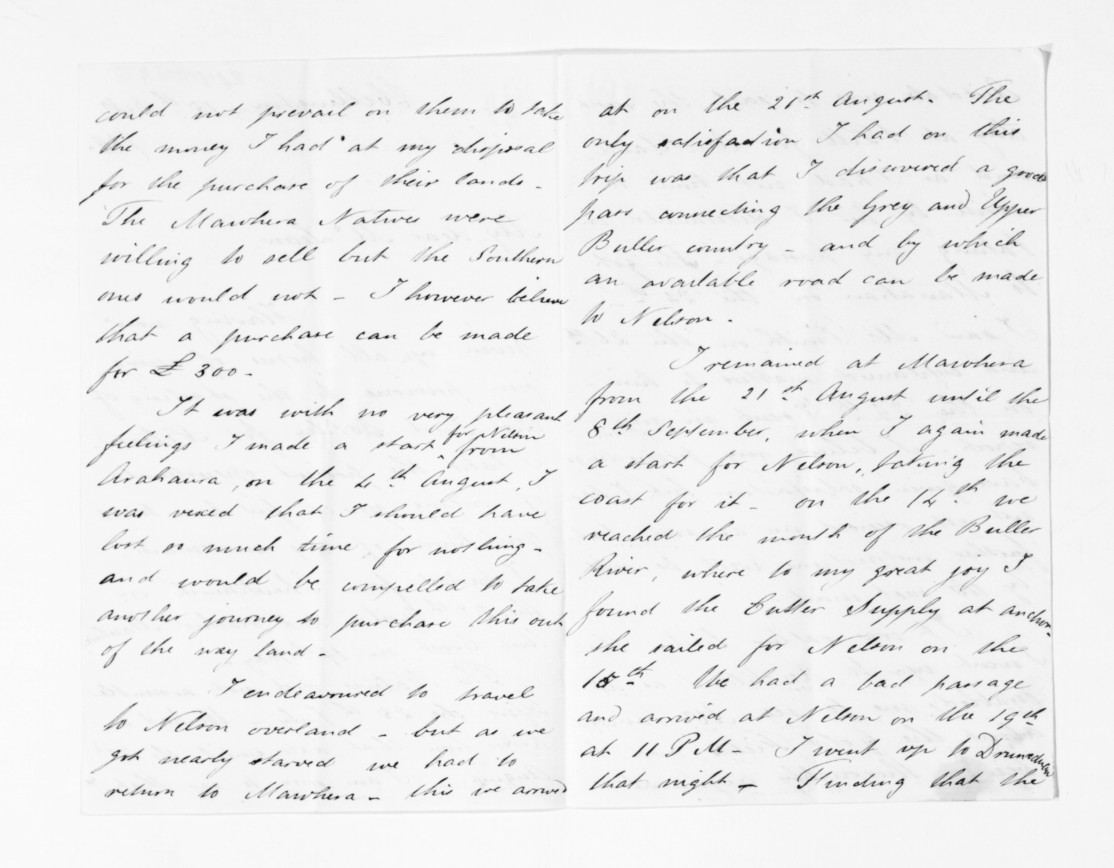 could not prevail on them to take
the money I had at my disposal
for the purchase of their lands -
The Mawhera Natives were
willing to sell but the Southern
ones would not - I however believe
that a purchase can be made
for £300 -
It was with no very pleasant
feelings I made a start for Nelson from
Arahaura, on the 4th August, I
was vexed that I should have
lost so much time for nothing -
and would be compelled to take
another journey to purchase this out
of the way land -
I endeavoured to travel
to Nelson overland - but as we
got nearly starved we had to
return to Mawhera - this we arrived
at on the 21st August. The
only satisfaction I had on this
trip was that I discovered a good
pass connecting the Grey and Upper
Buller country - and by which
an available road can be made
to Nelson.
I remained at Mawhera
from the 21st August until the
8th September, when I again made
a start for Nelson, taking the
coast for it - on the 14th we
reached the mouth of the Buller
River, where to my great joy I
found the Cutter Supply at anchor -
she sailed for Nelson on the
We had a bad passage
and arrived at Nelson on the 19th
at 11 P.M - I went up to
that night - Finding that the